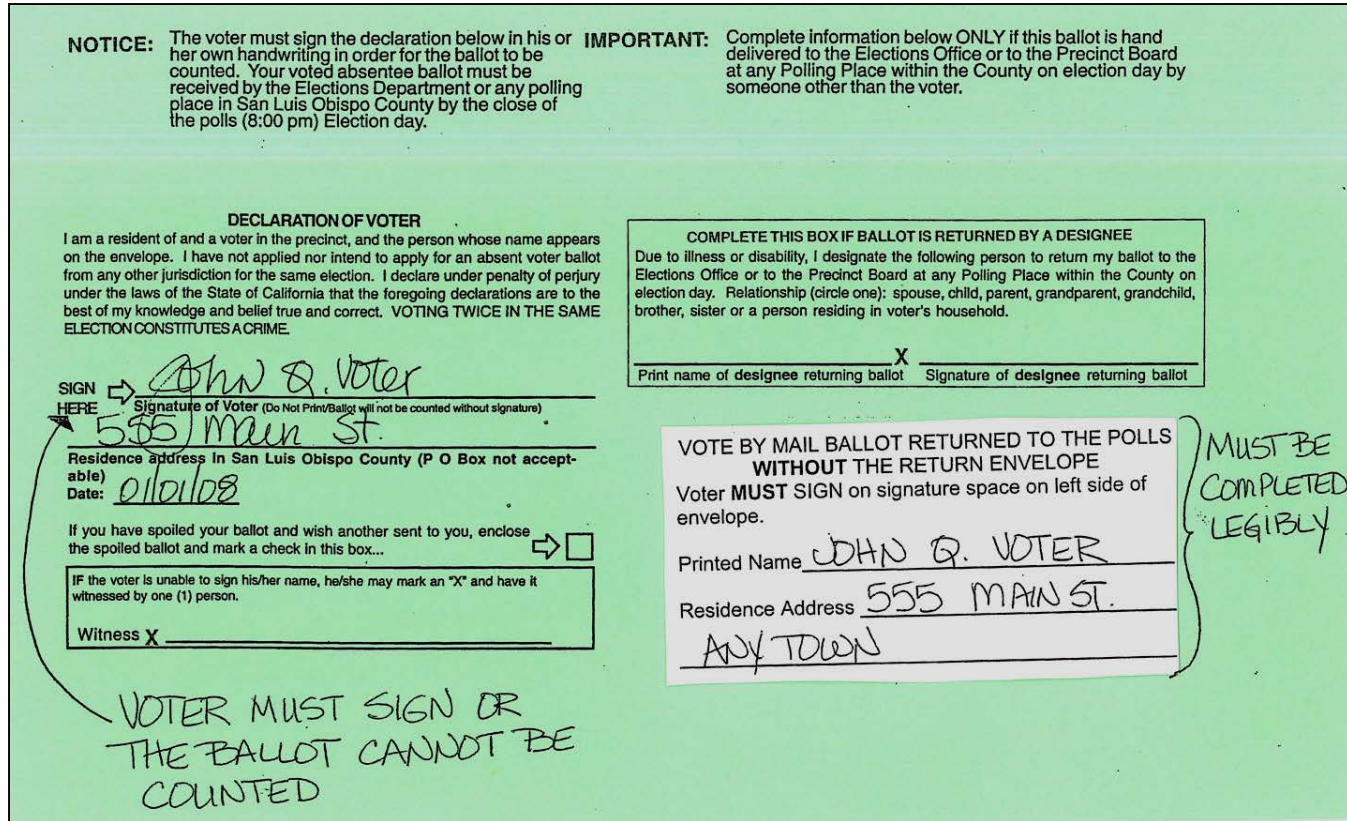 NOTICE: The voter must sign the declaration below in his or
her own handwriting in order for the ballot to be
counted. Your voted absentee ballot must be
received by the Elections Department or any polling
place in San Luis Obispo County by the close of
the polls (8:00 pm) Election day.
IMPORTANT: Complete information below ONLY if this ballot is hand
delivered to the Elections Office or to the Precinct Board
at any Polling Place within the County on election day by
someone other than the voter.
DECLARATION OF VOTER
I am a resident of and a voter in the precinct, and the person whose name appears
on the envelope. I have not applied nor intend to apply for an absent voter ballot
from any other jurisdiction for the same election. I declare under penalty of perjury
under the laws of the State of California that the foregoing declarations are to the
best of my knowledge and belief true and correct. VOTING TWICE IN THE SAME
ELECTION CONSTITUTES A CRIME.
SIGN John Q. Voter
HERE Signature of Voter (Do Not Print/Ballot will not be counted without signature)
555 Main St.
Residence address In San Luis Obispo County (P O Box not accept-
able)
Date: 01/01/08
If you have spoiled your ballot and wish another sent to you, enclose
the spoiled ballot and mark a check in this box...
IF the voter is unable to sign his/her name, he/she may mark an "X" and have it
witnessed by one (1) person.
Witness X
VOTER MUST SIGN OR
THE BALLOT CANNOT BE
COUNTED
COMPLETE THIS BOX IF BALLOT IS RETURNED BY A DESIGNEE
Due to illness or disability, I designate the following person to return my ballot to the
Elections Office or to the Precinct Board at any Polling Place within the County on
election day. Relationship (circle one): spouse, child, parent, grandparent, grandchild,
brother, sister or a person residing in voter's household.
X
Print name of designee returning ballot Signature of designee returning ballot
VOTE BY MAIL BALLOT RETURNED TO THE POLLS
WITHOUT THE RETURN ENVELOPE
Voter MUST SIGN on signature space on left side of
envelope.
Printed Name JOHN Q. VOTER
Residence Address 555 MAIN ST.
ANY TOWN
MUST BE
COMPLETED
LEGIBLY